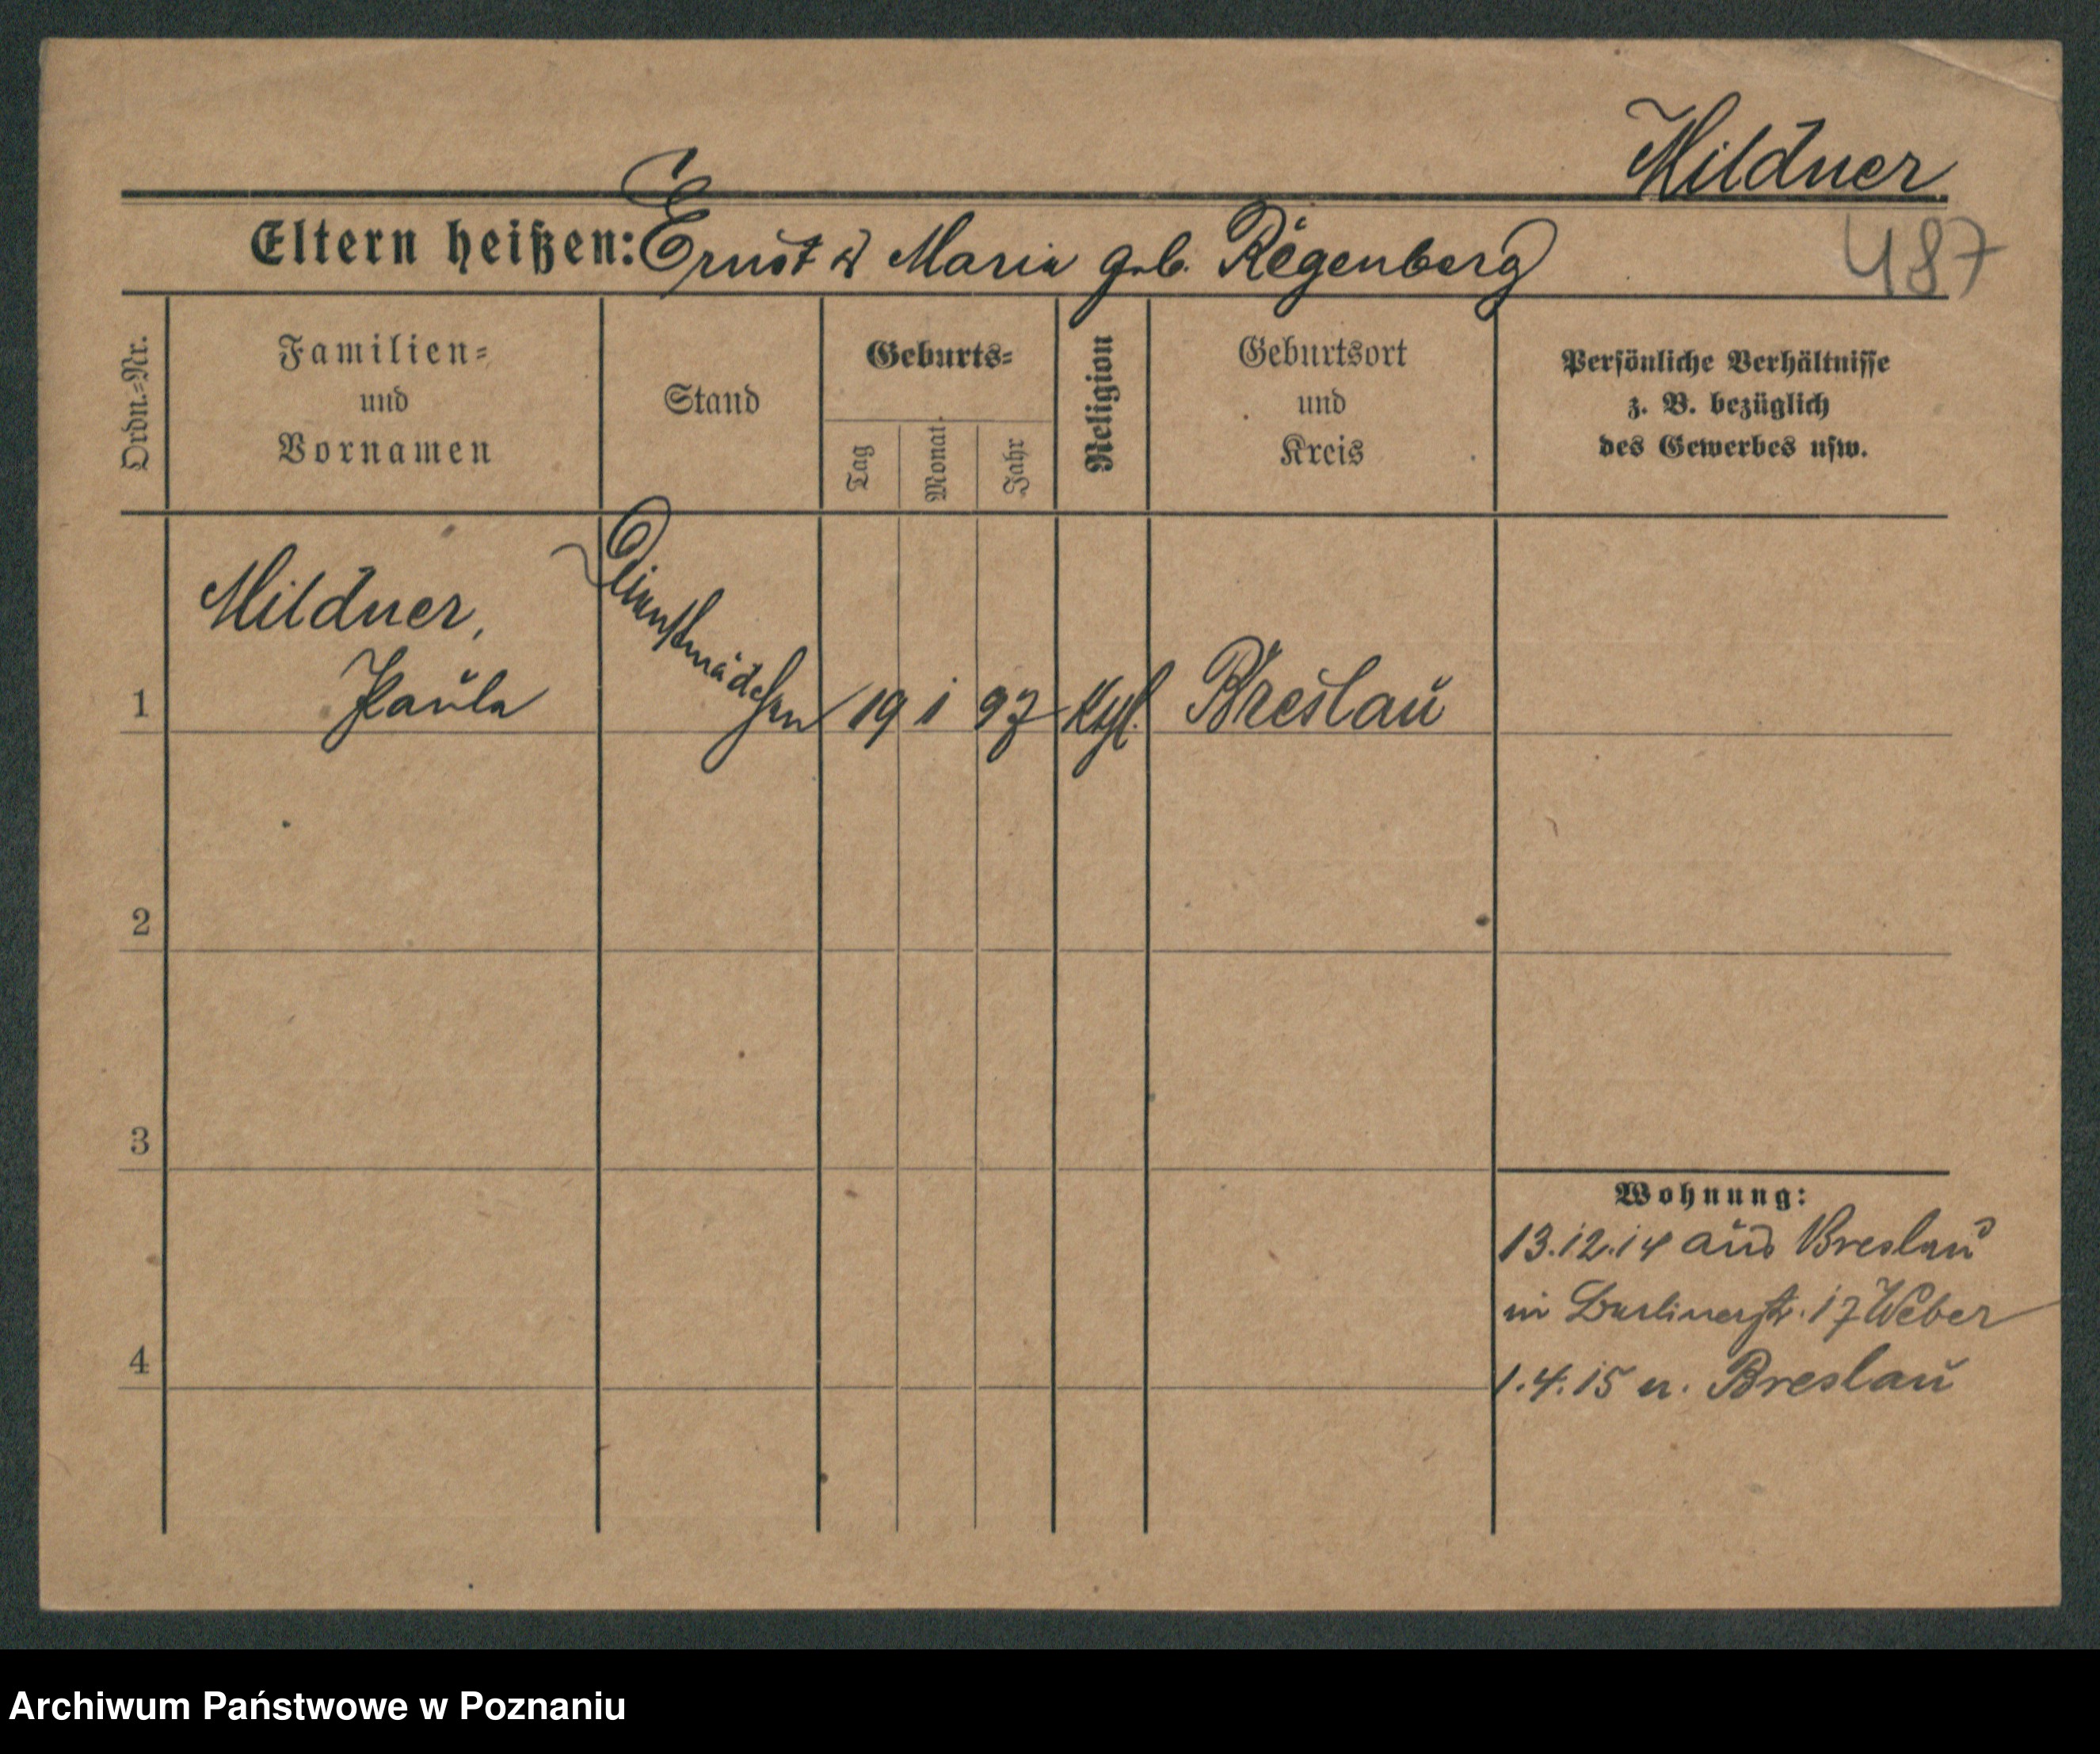 Mildner
Eltern heißen: Ernst & Maria geb. Regenberg
487
Ordn.=Nr.
Familien=
und
Vornamen
Stand
Geburts=
Tag
Monat
Jahr
Religion
Geburtsort
und
Kreis
Persönliche Verhältnisse
z. B. bezüglich
des Gewerbes usw.
Mildner,
1 Paula Dienstmädchen 19 1 97 Kath. Breslau
2
3
Wohnung:
13.12.14 aus Breslau
in Berlinerstr. 17 Weber
4
1.4.15 n. Breslau
Archiwum Państwowe w Poznaniu